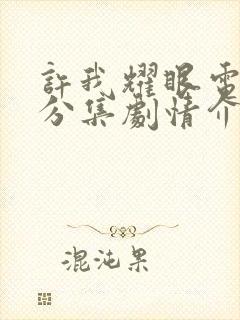 許我耀眼電
分集劇情介
混沌果